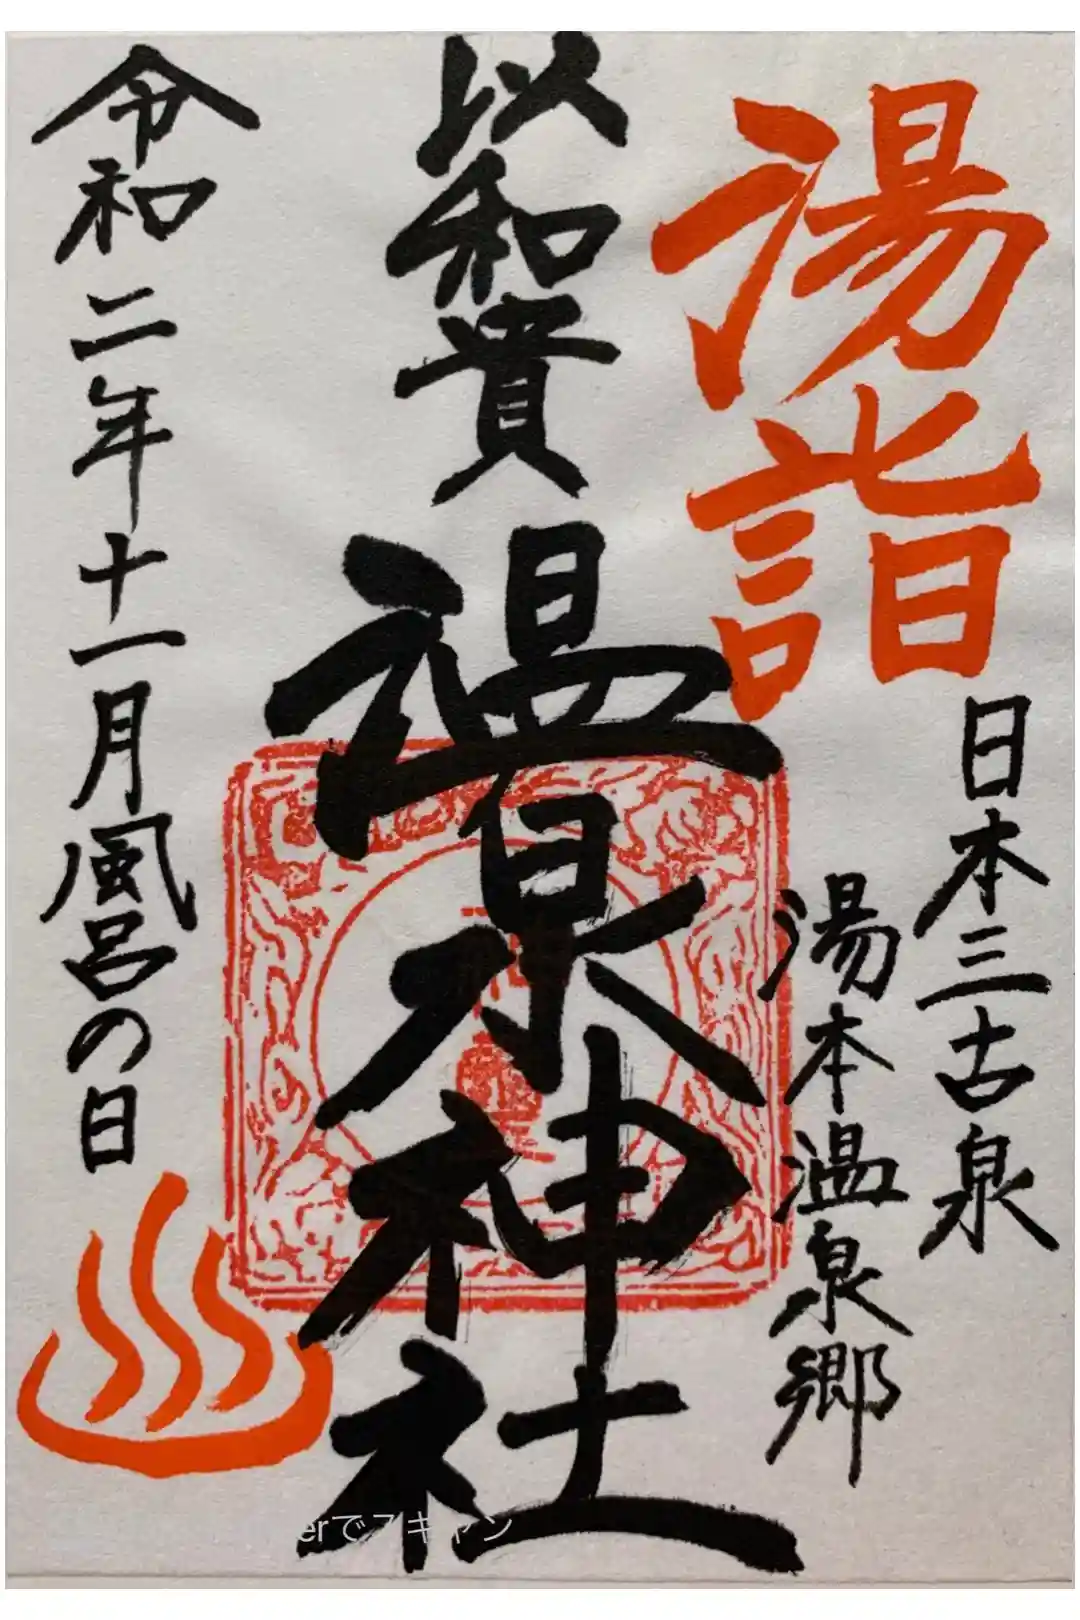 湯詣
日本三古泉
湯本温泉郷
以和貴
温泉神社
令和二年十一月風呂の日
erでスキャン